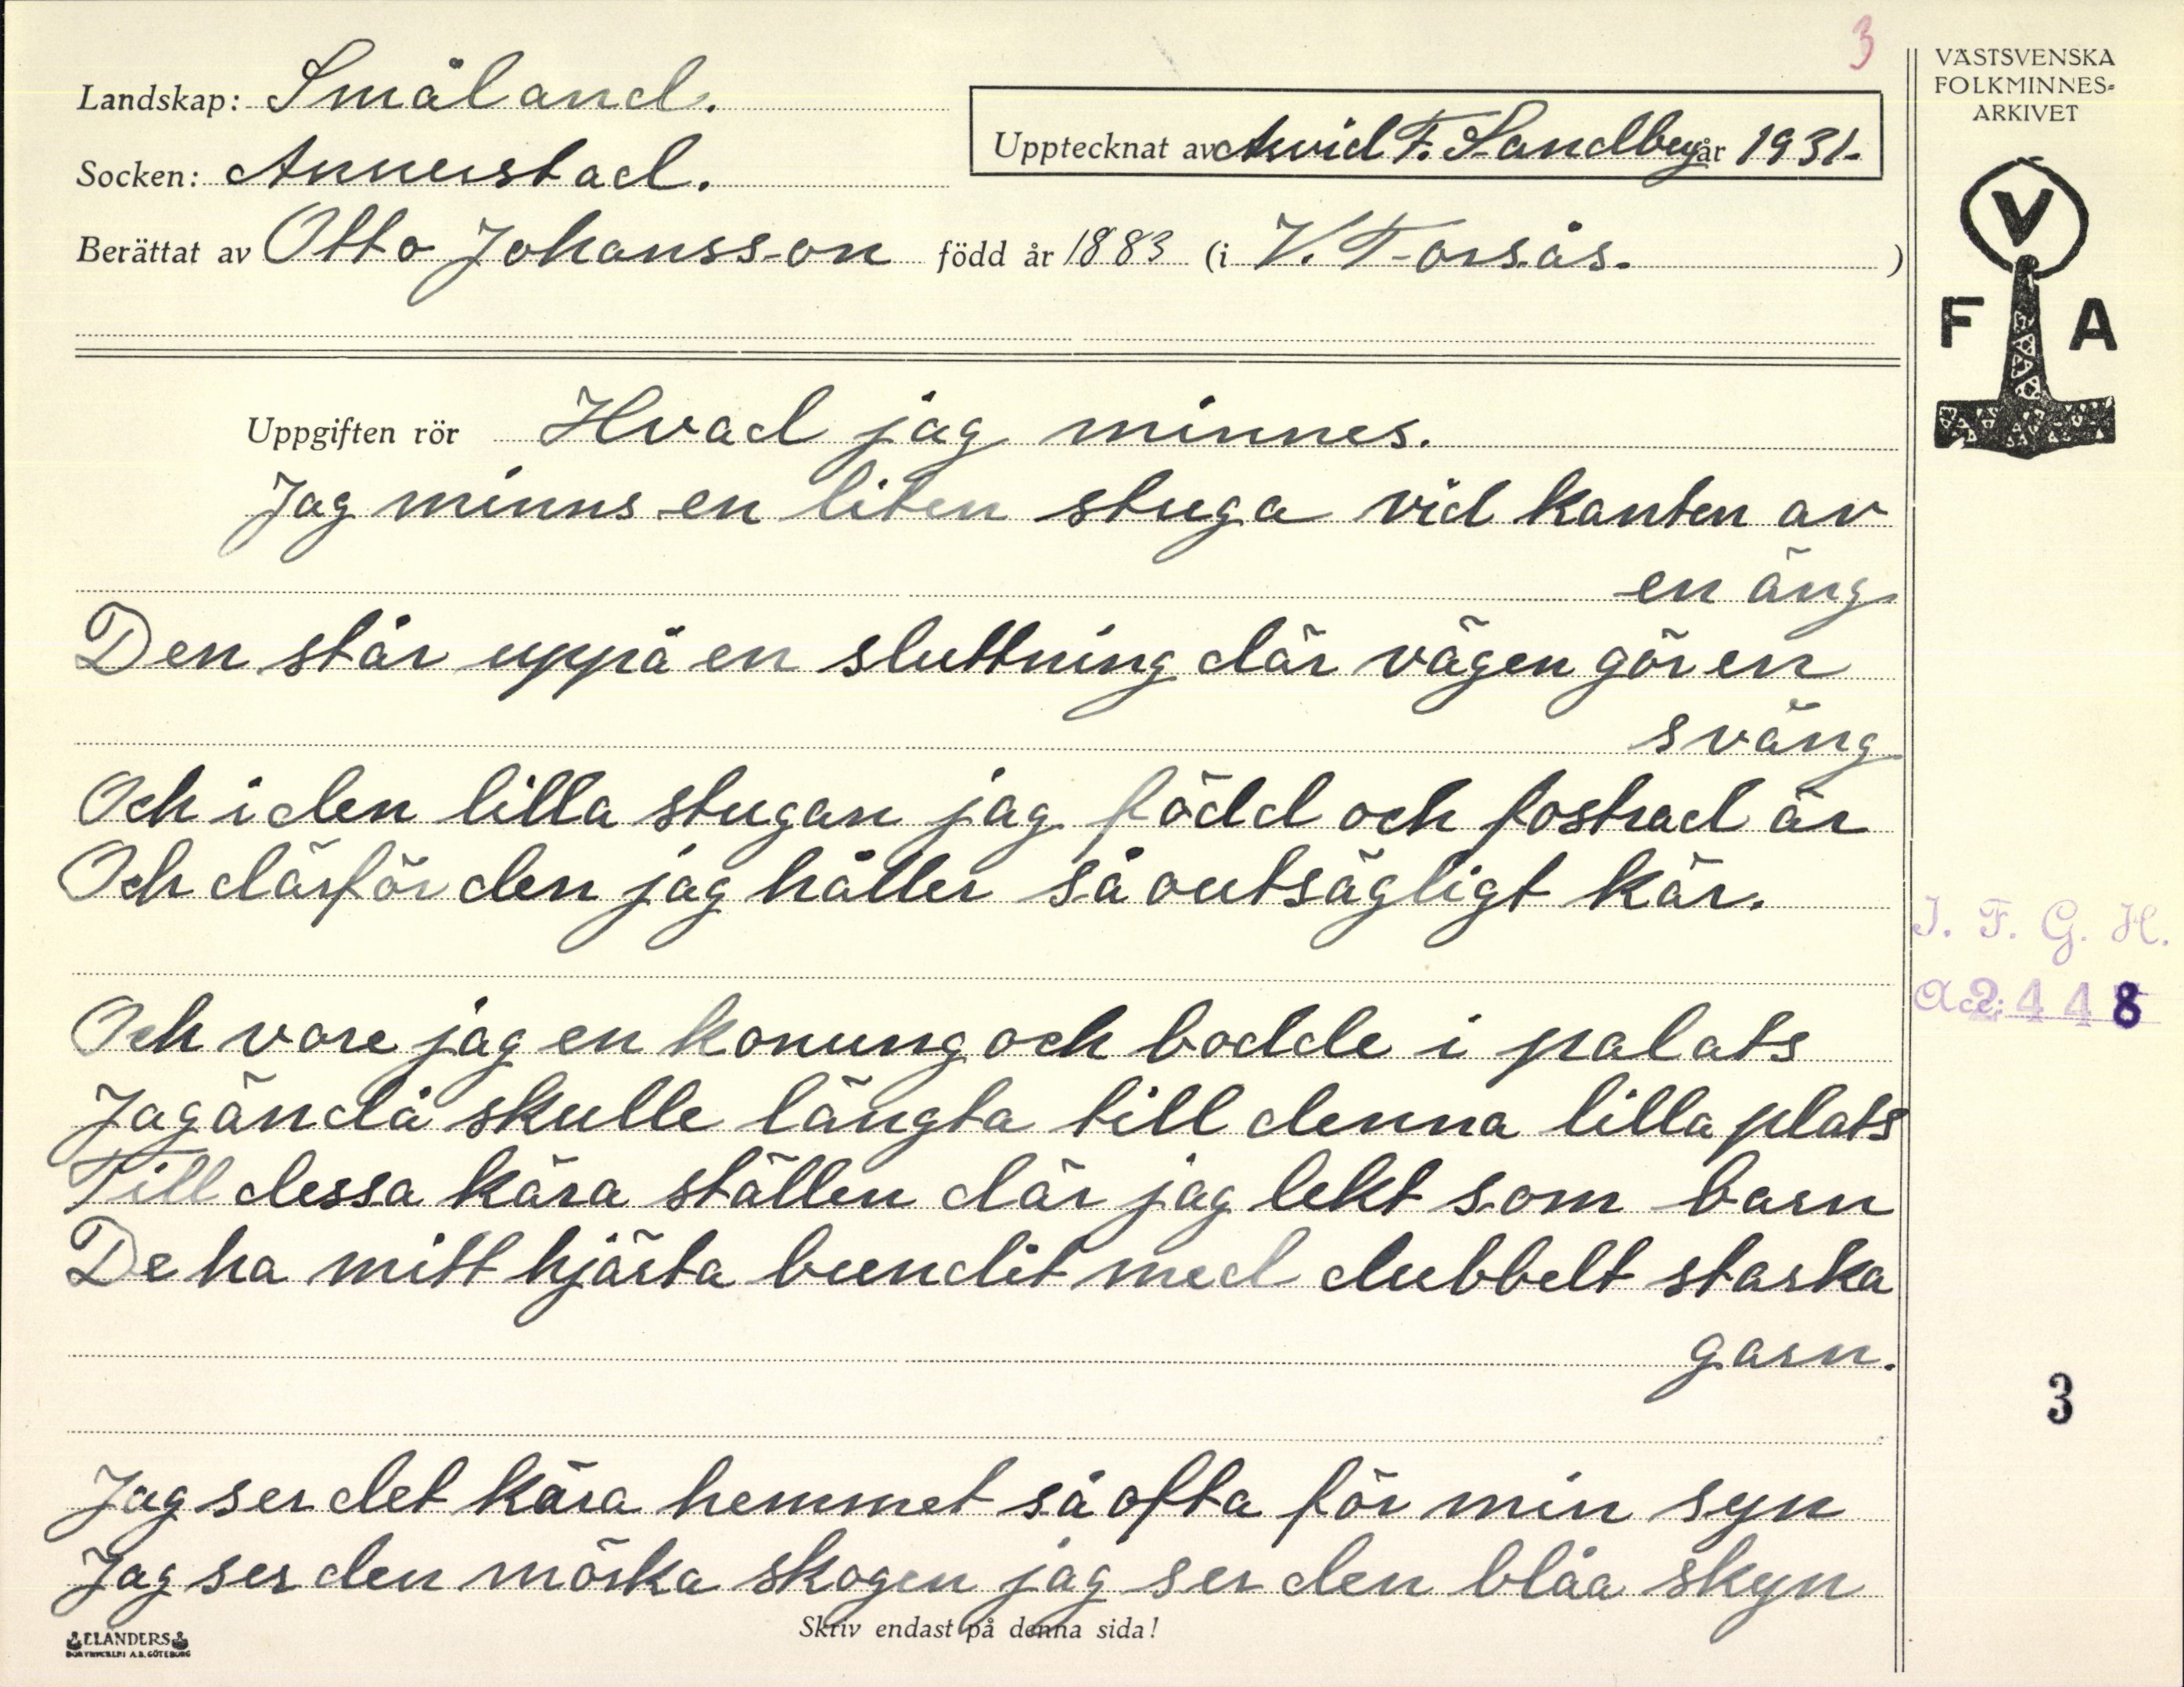 3
Landskap: Småland.
Socken: Annerstad.
Upptecknat av Arvid F. Sandberg år 1931.
Berättat av Otto Johansson född år 1883 (i V. Torsås. )
VÄSTSVENSKA
FOLKMINNES-
ARKIVET
V
F A
Uppgiften rör Hvad jag minnes.
Jag minns en liten stuga vid kanten av
en äng
Den står uppå en sluttning där vägen gör en
sväng
Och i den lilla stugan jag född och fostrad är
Och därför den jag håller så outsägligt kär.
Och vore jag en konung och bodde i palats
Jag ändå skulle längta till denna lilla plats
Till dessa kära ställen där jag lekt som barn
De ha mitt hjärta bundit med dubbelt starka
garn.
Jag ser det kära hemmet så ofta för min syn
Jag ser den mörka skogen jag ser den blåa skyn
I. F. G. H.
Acc: 2448
3
Skriv endast på denna sida!
ELANDERS
BOKTRYCKERI A.B. GÖTEBORG